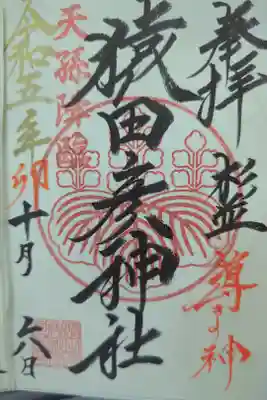 奉拝
杉並
導き神
猿田彦神社
天孫降臨
令和五年
卯
十月
六日